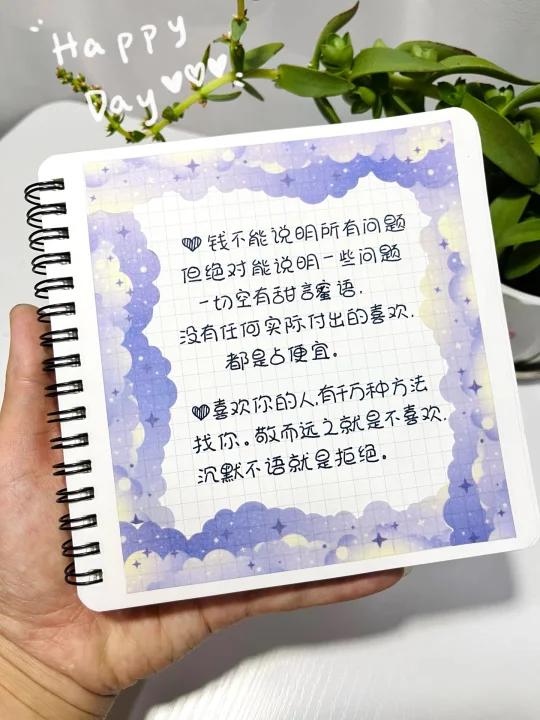 Happy
Day
钱不能说明所有问题
但绝对能说明一些问题
一切空有甜言蜜语.
没有任何实际付出的喜欢.
都是占便宜。
喜欢你的人.有千万种方法
找你。敬而远之就是不喜欢.
沉默不语就是拒绝。